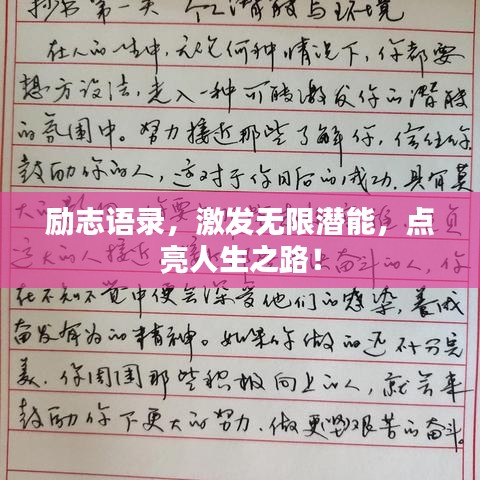 抄书第一天 个人潜能与环境
在人的一生中，无论何种情况下，你都要
想方设法，走入一种可能激发你的潜能
的氛围中。努力接近那些了解你，信任你
鼓励你的人，这对于你日后的成功，具有莫
励志语录，激发无限潜能，点
亮人生之路！
在不知不觉中便会深受他们的感染，养成
奋发有为的精神。如果你做的还不十分完
美，你周围那些积极向上的人，就会来
鼓励你下更大的努力，做更坚艰苦的奋斗。